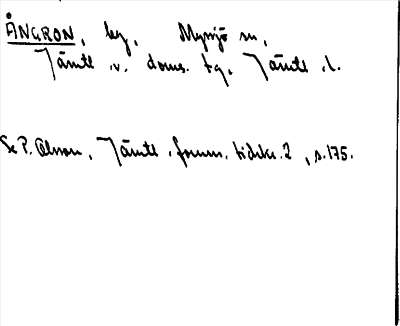 ÅNGRON, by, Myssjö sn,
Jämtl. v. doms. tg, Jämtl. l.
Se P. Olsson, Jämtl. fornm. tidskr. 2, s. 175.